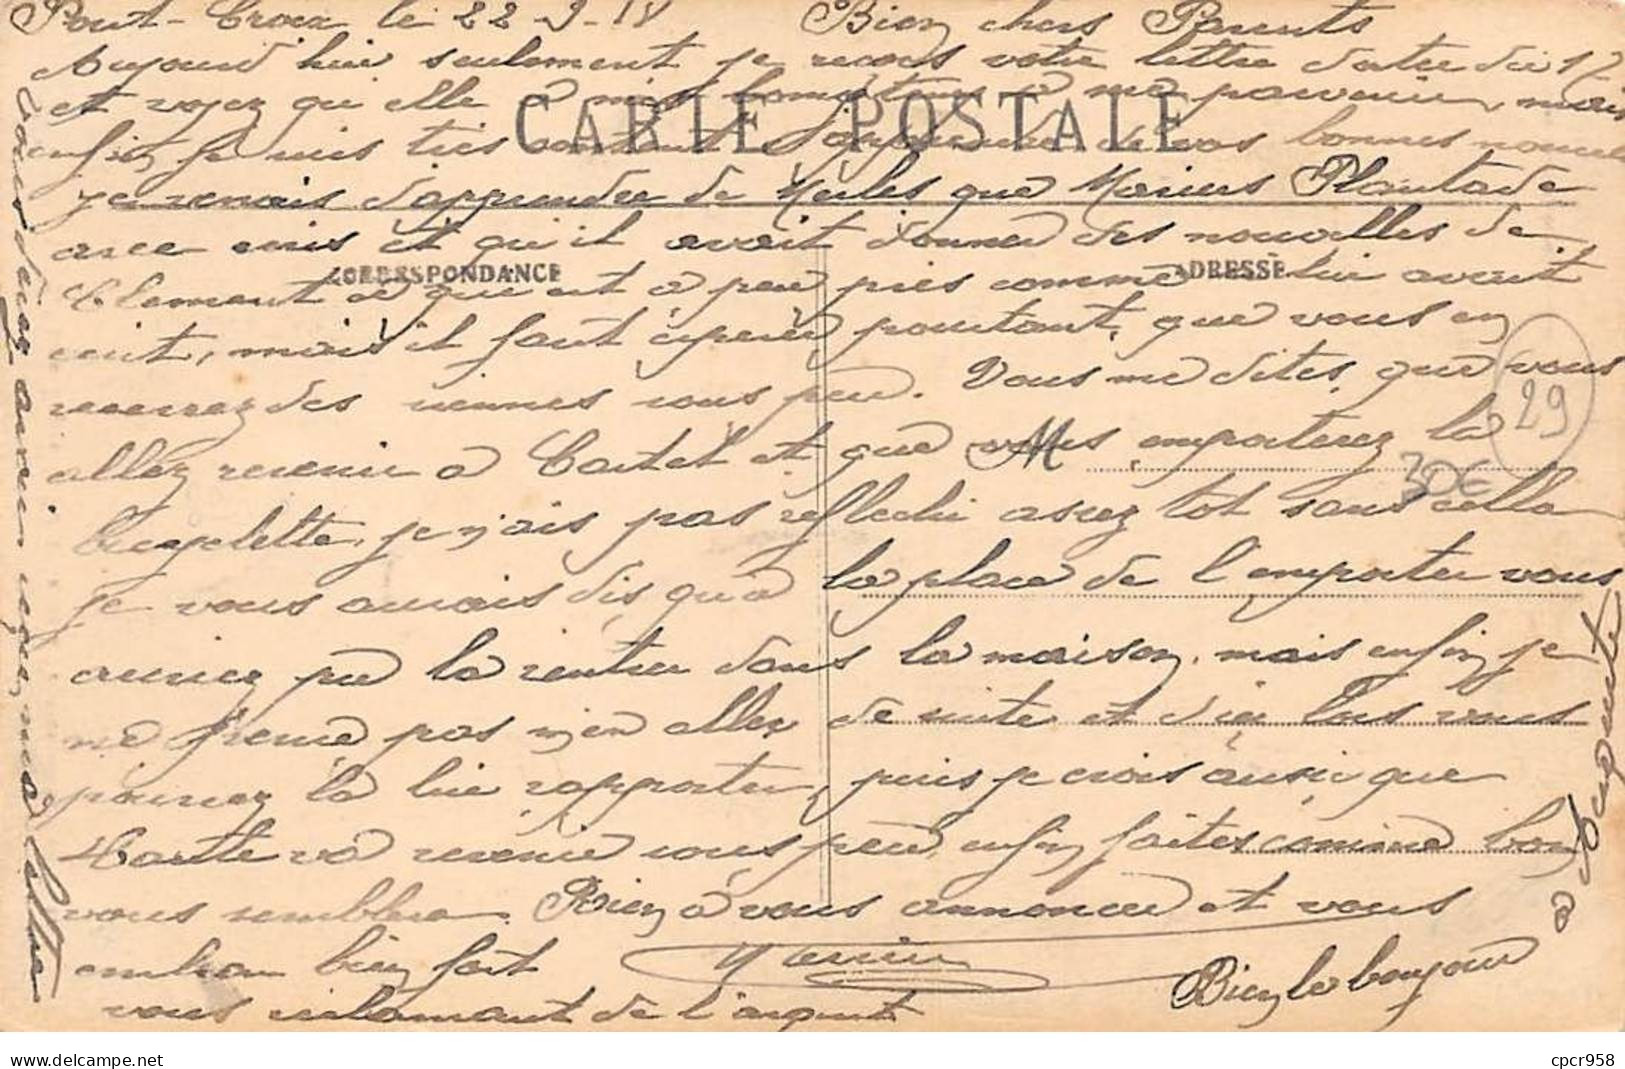 Pont-Croix le 22-9-18 Bien chers Parents
Aujourd'hui seulement je recois votre lettre datée du 17
et voyez que elle a mis longtems a me parvenir, mais
enfin je suis tres content d'apprendre de vos bonnes nouvelles
je venais d'apprendre de que Marius Plantade
avec et qu'il avait donner des nouvelles de
Clement ce que est a peu pres comme lui avait
mais il faut pourtant, que vous en
recevrez des siennes sous peu. Vous me dites que vous
allez revenir a Castel et que vous emporterez la
bicyclette, je n'ais pas reflechi assez tot sans cella
je vous aurais dis qu'a la place de l'emporter vous
auriez pu la rentrer dans la maison, mais enfin je
ne pas m'en aller de suite et d'ici lors vous
pourrez la lui rapporter, puis je crois aussi que
va revenir sous peu, enfin faites comme bon
vous semblera. Rien a vous annoncer et vous
embras bien fort Marius
vous reclamant de l'argent
Bien le bonjour
a Auguste
vous devez avoir reçu ma lettre
CARTE POSTALE
CORRESPONDANCE
ADRESSE
29
30€
cpcr958